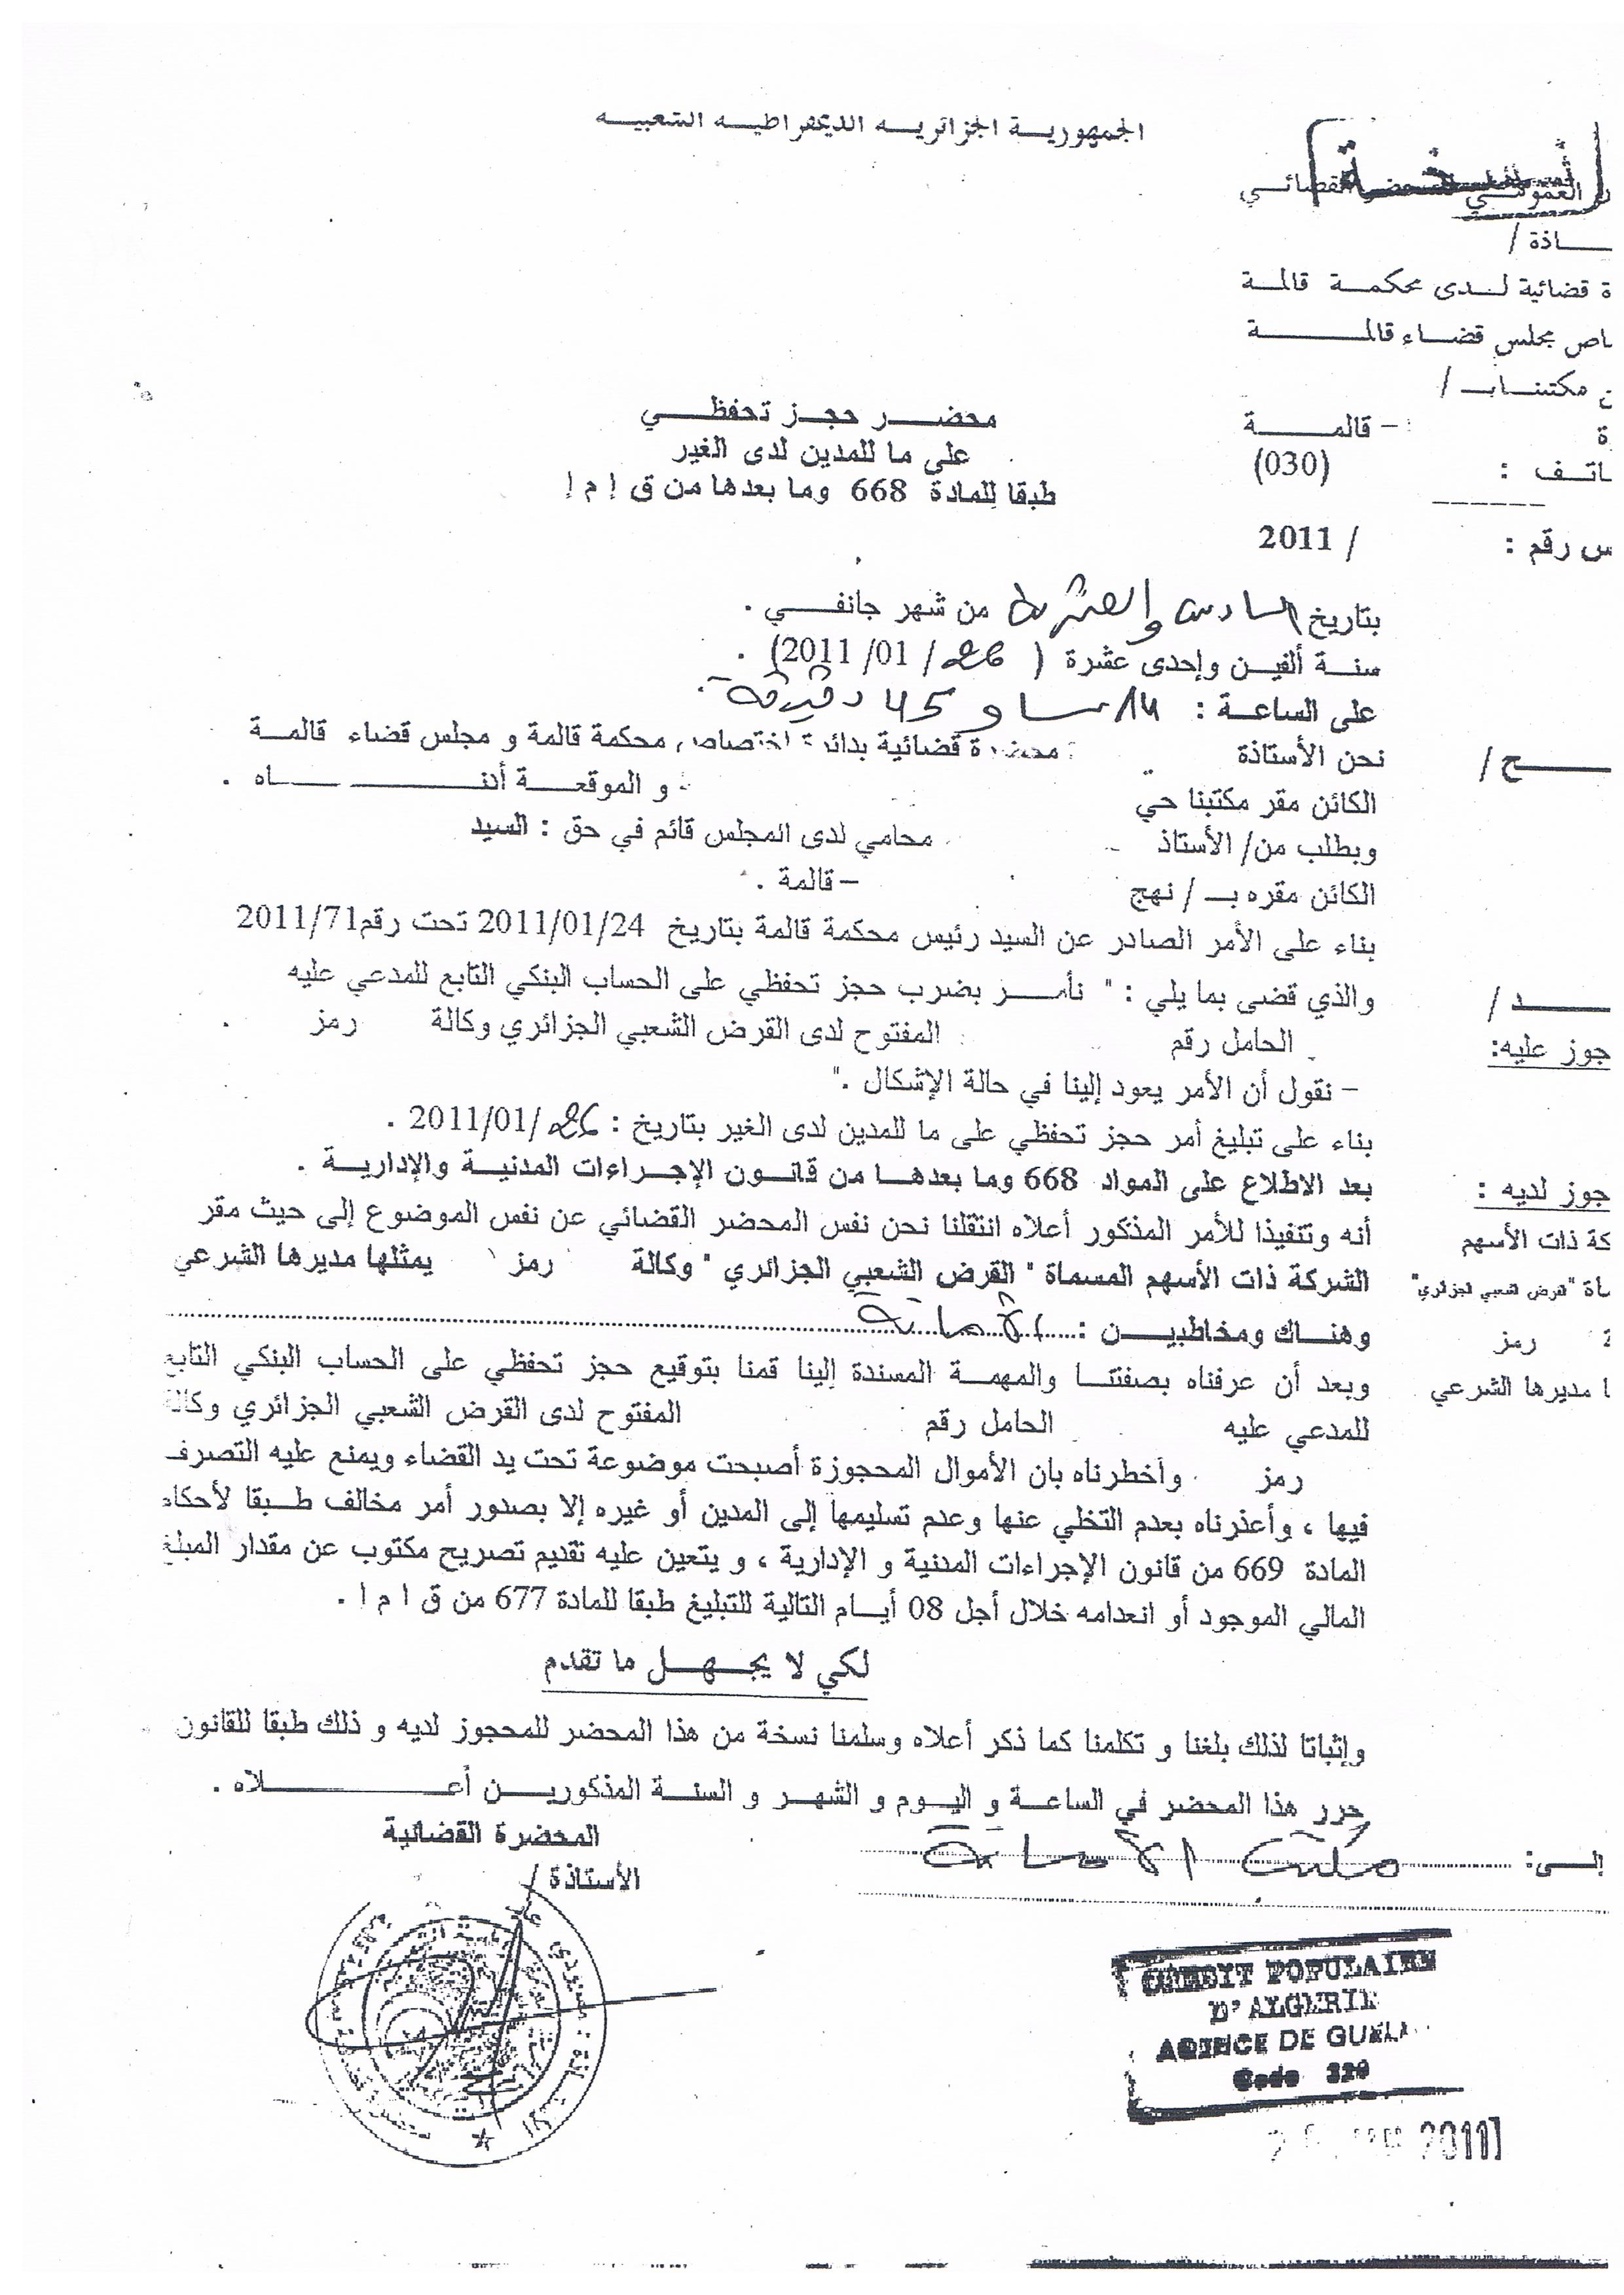 الجمهورية الجزائرية الديمقراطية الشعبية
نسخة
العمومي للمحضر القضائي
ـاذة /
ة قضائية لدى محكمة قالمة
ـاص مجلس قضاء قالمة
مكتبنا بـ /
ة - قالمة
ـاتف : (030)
س رقم : / 2011
محضر حجز تحفظي
على ما للمدين لدى الغير
طبقا للمادة 668 وما بعدها من ق إ م إ
بتاريخ السادس والعشرين من شهر جانفي .
سنة ألفين وإحدى عشرة ( 26 / 01/ 2011) .
على الساعة : 14 سا و 45 دقيقة .
ـح /
نحن الأستاذة محضرة قضائية بدائرة اختصاص محكمة قالمة و مجلس قضاء قالمة
الكائن مقر مكتبنا حي - و الموقعة أدناه .
وبطلب من/ الأستاذ محامي لدى المجلس قائم في حق : السيد
الكائن مقره بـ / نهج - قالمة .
بناء على الأمر الصادر عن السيد رئيس محكمة قالمة بتاريخ 2011/01/24 تحت رقم 2011/71
ـد /
والذي قضى بما يلي : " نأمر بضرب حجز تحفظي على الحساب البنكي التابع للمدعي عليه
جوز عليه:
الحامل رقم المفتوح لدى القرض الشعبي الجزائري وكالة رمز .
- نقول أن الأمر يعود إلينا في حالة الإشكال ."
بناء على تبليغ أمر حجز تحفظي على ما للمدين لدى الغير بتاريخ : 26/ 2011/01 .
بعد الاطلاع على المواد 668 وما بعدها من قانون الإجراءات المدنية والإدارية .
جوز لديه :
أنه وتنفيذا للأمر المذكور أعلاه انتقلنا نحن نفس المحضر القضائي عن نفس الموضوع إلى حيث مقر
كة ذات الأسهم
الشركة ذات الأسهم المسماة " القرض الشعبي الجزائري " وكالة رمز يمثلها مديرها الشرعي
ـاة "القرض الشعبي الجزائري"
وهناك ومخاطبين : الأمانة
رمز
وبعد أن عرفناه بصفتنا والمهمة المسندة إلينا قمنا بتوقيع حجز تحفظي على الحساب البنكي التابع
ا مديرها الشرعي
للمدعي عليه الحامل رقم المفتوح لدى القرض الشعبي الجزائري وكالة
رمز وأخطرناه بان الأموال المحجوزة أصبحت موضوعة تحت يد القضاء ويمنع عليه التصرف
فيها ، وأعذرناه بعدم التخلي عنها وعدم تسليمها إلى المدين أو غيره إلا بصدور أمر مخالف طبقا لأحكام
المادة 669 من قانون الإجراءات المدنية و الإدارية ، و يتعين عليه تقديم تصريح مكتوب عن مقدار المبلغ
المالي الموجود أو انعدامه خلال أجل 08 أيام التالية للتبليغ طبقا للمادة 677 من ق ا م ا .
لكي لا يجهل ما تقدم
وإثباتا لذلك بلغنا و تكلمنا كما ذكر أعلاه وسلمنا نسخة من هذا المحضر للمحجوز لديه و ذلك طبقا للقانون
حرر هذا المحضر في الساعة و اليوم و الشهر و السنة المذكورين أعلاه .
إلى: مكتب الأمانة
المحضرة القضائية
الأستاذة /
CREDIT POPULAIRE
D'ALGERIE
AGENCE DE GUEL
Code 320
2011